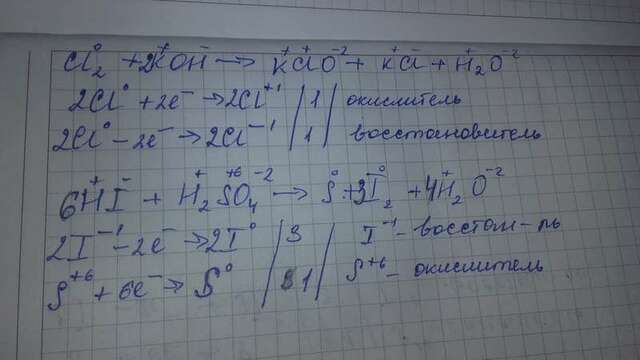 Cl₂⁰ + 2K⁺OH⁻ → K⁺Cl⁺O⁻² + K⁺Cl⁻ + H₂⁺O⁻²
2Cl⁰ + 2e⁻ → 2Cl⁺¹ | 1 | окислитель
2Cl⁰ - 2e⁻ → 2Cl⁻¹ | 1 | восстановитель
6H⁺I⁻ + H₂⁺S⁺⁶O₄⁻² → S⁰ + 3I₂⁰ + 4H₂O⁻²
2I⁻¹ - 2e⁻ → 2I⁰ | 3 | I⁻¹ - восстан-ль
S⁺⁶ + 6e⁻ → S⁰ | 1 | S⁺⁶ - окислитель